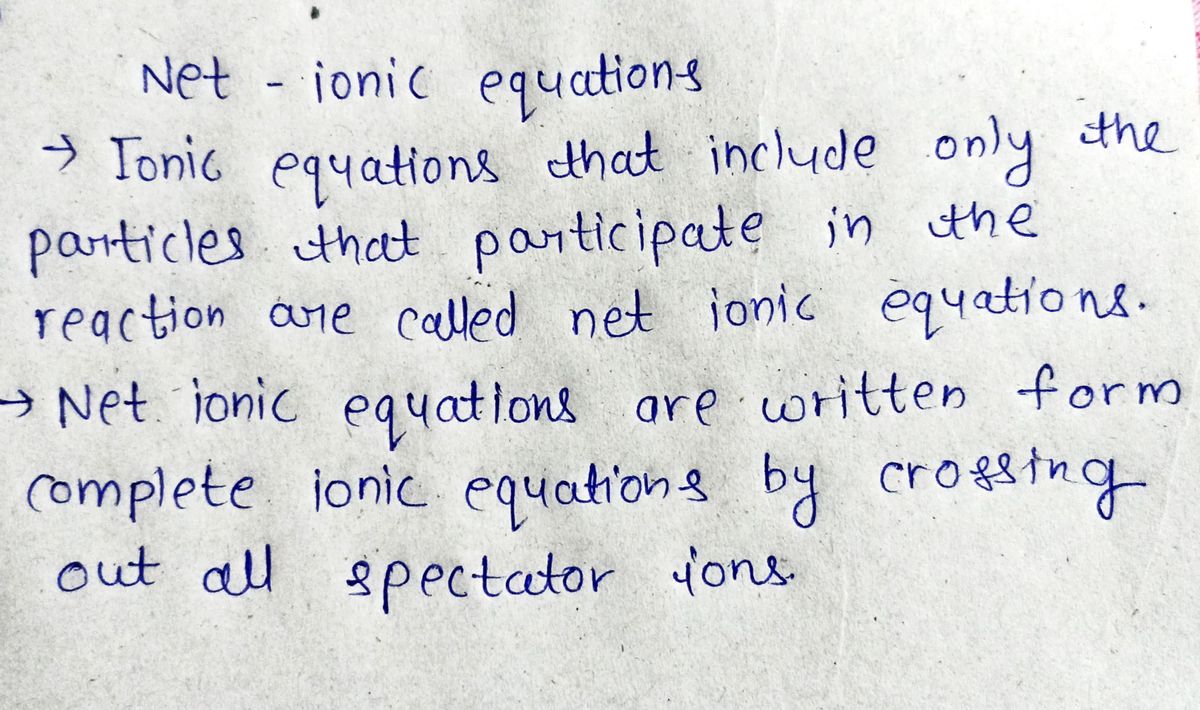 Net - ionic equations
→ Ionic equations that include only the
particles that participate in the
reaction are called net ionic equations.
→ Net ionic equations are written form
complete ionic equations by crossing
out all spectator ions.